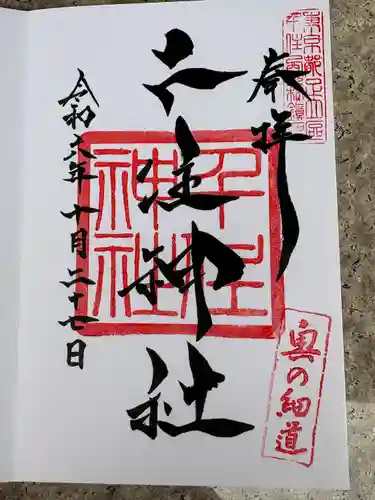 東京都足立区
千住
奉拝
千住神社
千住
神社
令和六年十月二十七日
奥の細道